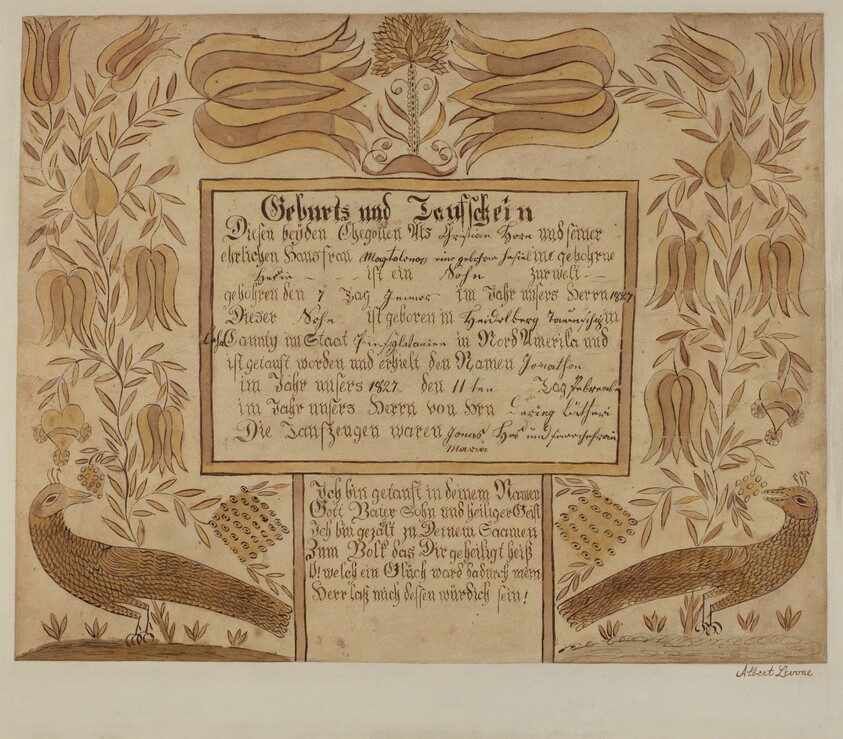 Geburts und Taufschein
Diesen beyden Ehegatten Als Christian Horn und seiner
ehrlichen Hausfrau Magdalena, eine gebohrne
ist ein Sohn zur welt
gebohren den 7 Tag im Jahr unsers Herrn 1827
Dieser Sohn ist geboren in Heidelberg Taunschip in
Caunty im Staat in Nord Amerika und
ist getauft worden und erhielt den Namen Jonathon
im Jahr unsers 1827 den 11 ten Tag
im Jahr unsers Herrn von Hrn
Die Taufzeugen waren Jonas
Maria
Ich bin getauft in deinem Namen
Gott Vater Sohn und Heiliger Geist
Ich bin gezält zu Deinem Saamen
Zum Volk das Dir geheiligt heiß
O! welch ein Glück ward dadurch mein
Herr laß mich dessen würdich sein!
Albert Levone